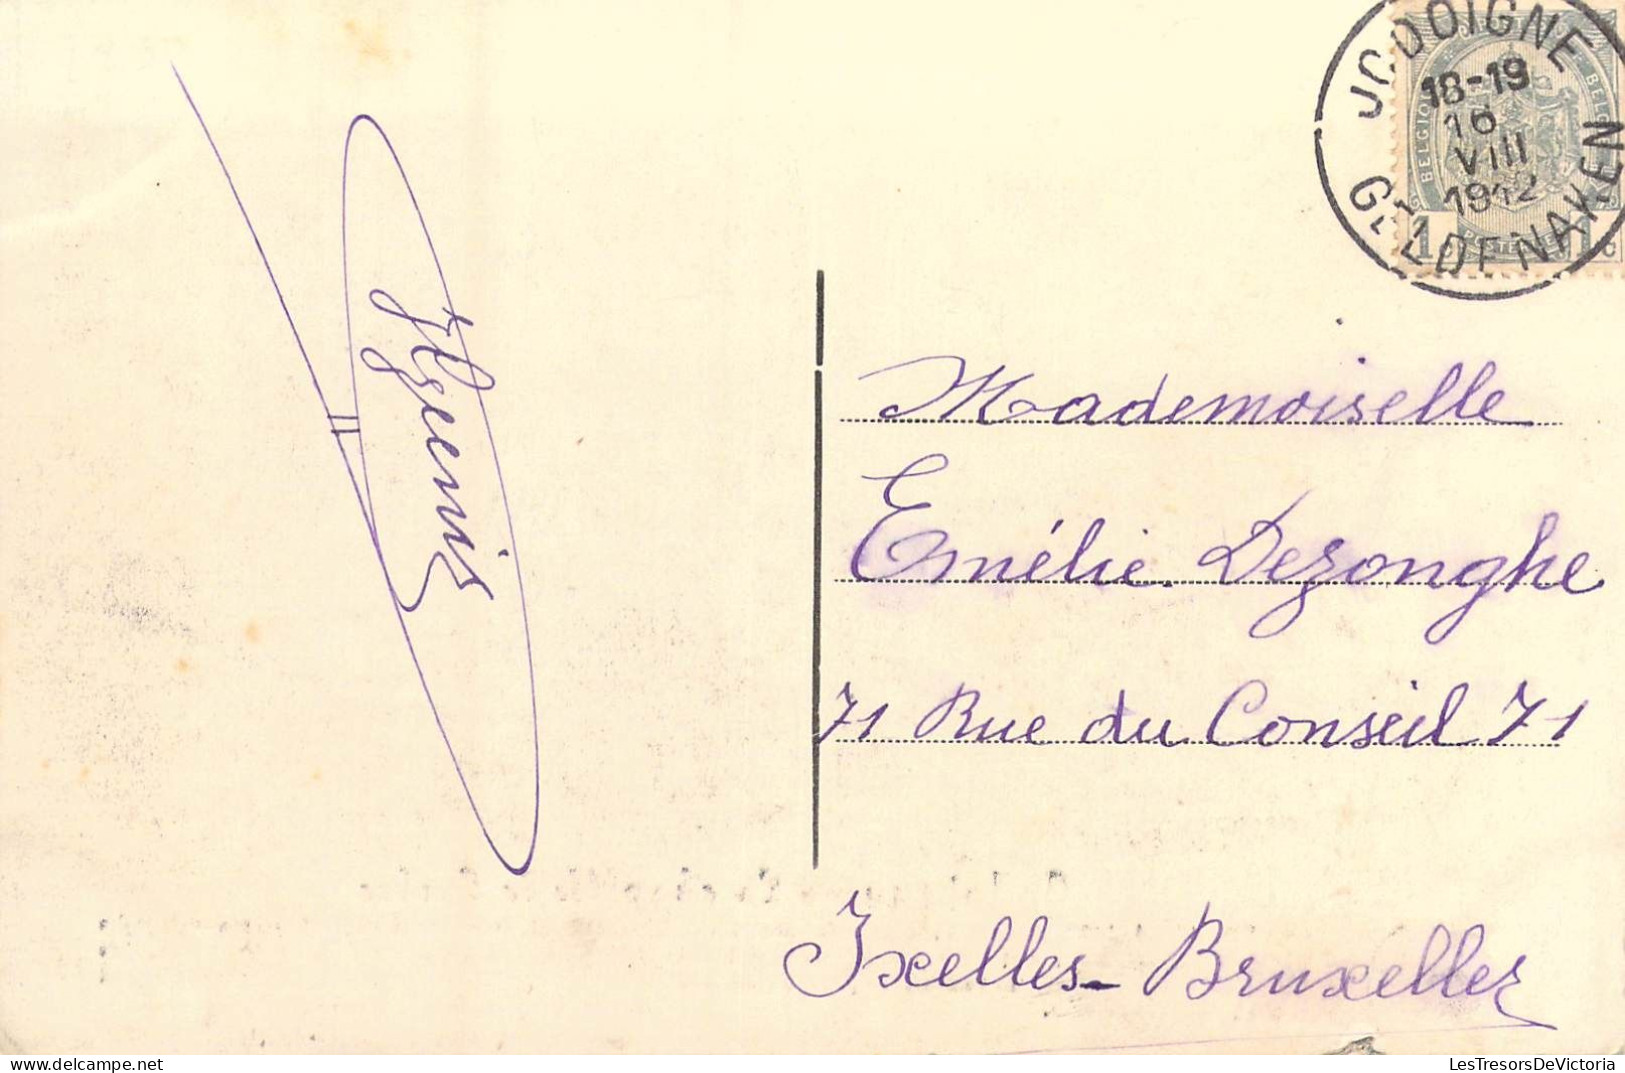 JODOIGNE
18-19
16
VIII
1912
GELDENAKEN
BELGIQUE
1
1
C
Mademoiselle
Emélie Dezonghe
71 Rue du Conseil 71
Ixelles-Bruxelles
LesTresorsDeVictoria